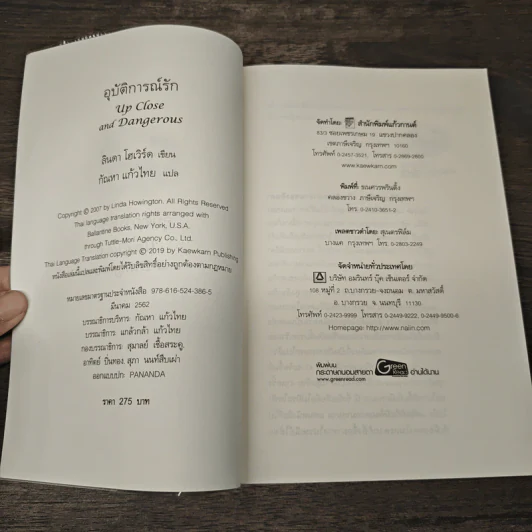 อุบัติการณ์รัก
Up Close
and Dangerous
ลินดา โฮเวิร์ด เขียน
กัณหา แก้วไทย แปล
Copyright © 2007 by Linda Howington. All Rights Reserved
Thai language translation rights arranged with
Ballantine Books, New York, U.S.A.
through Tuttle-Mori Agency Co., Ltd.
Thai Language Translation copyright © 2019 by Kaewkarn Publishing
หนังสือเล่มนี้แปลและพิมพ์โดยได้รับลิขสิทธิ์อย่างถูกต้องตามกฎหมาย
หมายเลขมาตรฐานประจำหนังสือ 978-616-524-386-5
มีนาคม 2562
บรรณาธิการบริหาร กัณหา แก้วไทย
บรรณาธิการ แกล้วกล้า แก้วไทย
กองบรรณาธิการ สุมาลย์ เชื้อสระคู,
อาทิตย์ ปิ่นทอง, สุภา นนท์สืบเผ่า
ออกแบบปก PANANDA
ราคา 275 บาท
จัดทำโดย สำนักพิมพ์แก้วกานต์
63/2 ซอยเพชรเกษม 19 แขวงปากคลอง
เขตภาษีเจริญ กรุงเทพฯ 10160
โทรศัพท์ 0-2457-3531, โทรสาร 0-2869-2600
www.kaewkarn.com
พิมพ์ที่ ธนศวรพริ้นติ้ง
คลองขวาง ภาษีเจริญ กรุงเทพฯ
โทร. 0-2410-3651-2
เพลตราวดำโดย สุเนตร์ฟิล์ม
บางแค กรุงเทพฯ โทร. 0-2803-2249
จัดจำหน่ายทั่วประเทศโดย
บริษัท อมรินทร์ บุ๊ค เซ็นเตอร์ จำกัด
108 หมู่ที่ 2 ถ.บางกรวย-จงถนอม ต. มหาสวัสดิ์
อ. บางกรวย จ. นนทบุรี 11130
โทรศัพท์ 0-2423-9999, โทรสาร 0-2449-9222, 0-2449-9500-6
Homepage: http://www.naiin.com
พิมพ์บน
กระดาษถนอมสายตา Green Read อ่านได้นาน
www.greenread.com